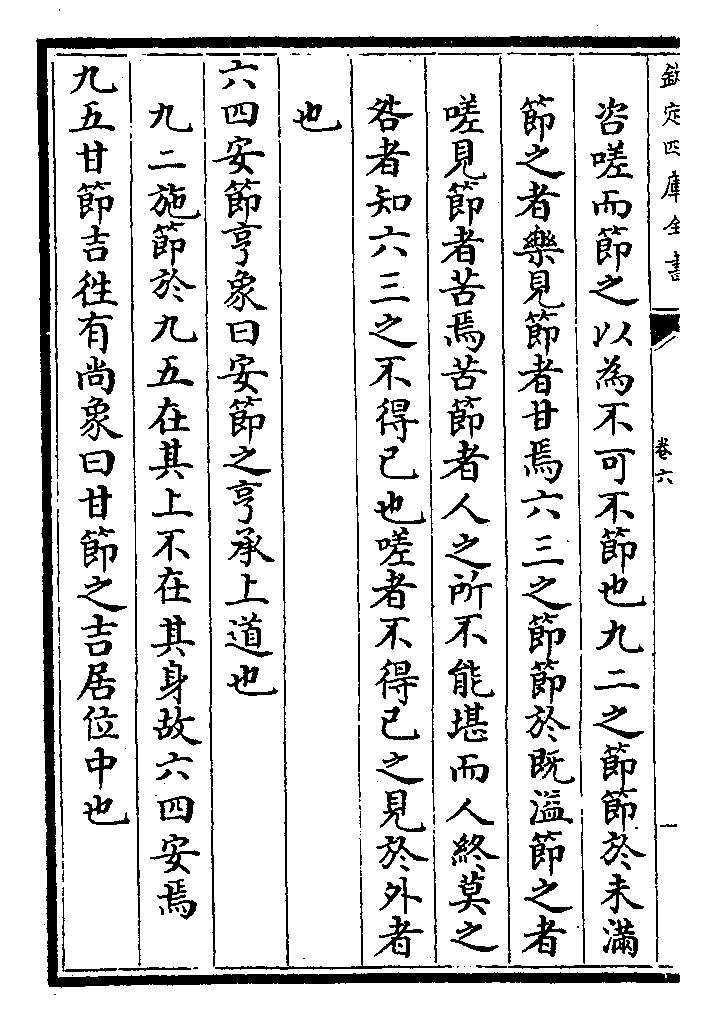 欽定四庫全書
卷六
一
咨嗟而節之以為不可不節也九二之節節於未滿
節之者樂見節者甘焉六三之節節於既溢節之者
嗟見節者苦焉苦節者人之所不能堪而人終莫之
咎者知六三之不得已也嗟者不得已之見於外者
也
六四安節亨象曰安節之亨承上道也
九二施節於九五在其上不在其身故六四安焉
九五甘節吉徃有尚象曰甘節之吉居位中也